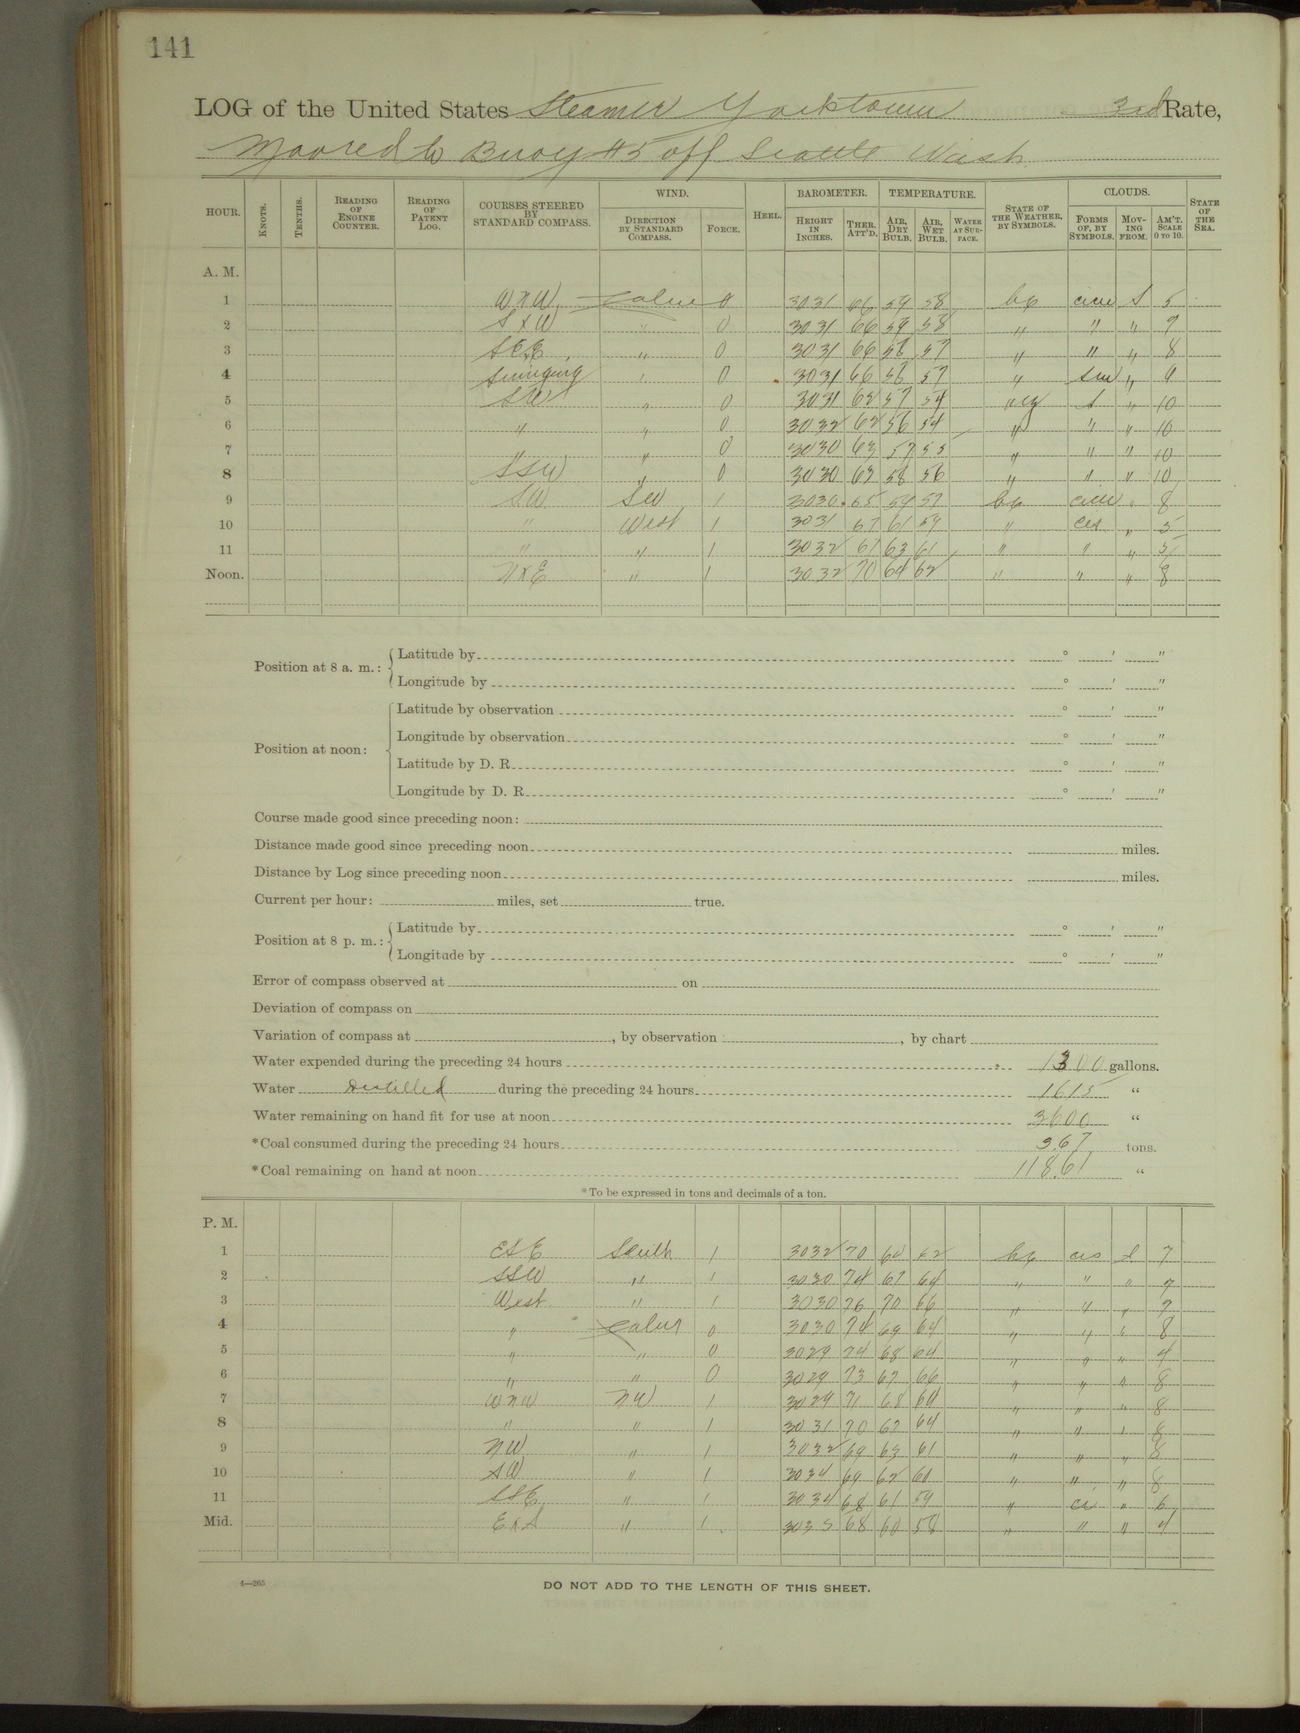 141
LOG of the United States Steamer Yorktown 3rd Rate,
Moored to Buoy #5 off Seattle Wash
HOUR. KNOTS. TENTHS. READING OF ENGINE COUNTER. READING OF PATENT LOG. COURSES STEERED BY STANDARD COMPASS. WIND. DIRECTION BY STANDARD COMPASS. FORCE. HEEL. BAROMETER. HEIGHT IN INCHES. THER. ATT'D. TEMPERATURE. AIR, DRY BULB. AIR, WET BULB. WATER AT SURFACE. STATE OF THE WEATHER, BY SYMBOLS. CLOUDS. FORMS OF, BY SYMBOLS. MOVING FROM. AM'T. SCALE 0 TO 10. STATE OF THE SEA.
A. M.
1 WNW Calm 0 3031 66 59 58 bc S 5
2 SxW " 0 3031 66 59 58 " " " 9
3 " 0 3031 66 58 57 " " " 8
4 Swinging " 0 3031 66 58 57 " "
5 SW " 0 3031 62 57 54 " 10
6 " " 0 3032 62 56 54 " " " 10
7 " " 0 3030 63 57 55 " " " 10
8 SSW " 0 3030 63 58 56 " " " 10
9 SW SW 1 3030 65 59 57 bc " 8
10 " West 1 3031 67 61 59 " " 5
11 " " 1 3032 67 63 61 " " " 5
Noon. NxE " 1 3032 70 64 62 " " " 8
Position at 8 a. m.: Latitude by ° ′ ″
Longitude by ° ′ ″
Position at noon: Latitude by observation ° ′ ″
Longitude by observation ° ′ ″
Latitude by D. R. ° ′ ″
Longitude by D. R. ° ′ ″
Course made good since preceding noon:
Distance made good since preceding noon miles.
Distance by Log since preceding noon miles.
Current per hour: miles, set true.
Position at 8 p. m.: Latitude by ° ′ ″
Longitude by ° ′ ″
Error of compass observed at on
Deviation of compass on
Variation of compass at , by observation , by chart
Water expended during the preceding 24 hours 1300 gallons.
Water Distilled during the preceding 24 hours 1615 "
Water remaining on hand fit for use at noon 3600 "
*Coal consumed during the preceding 24 hours 3.67 tons.
*Coal remaining on hand at noon 118.61 "
*To be expressed in tons and decimals of a ton.
P. M.
1 ESE South 1 3032 70 64 62 bc cis 7
2 SSW " 1 3030 74 67 64 " " " 9
3 West " 1 3030 76 70 66 " " " 9
4 " Calm 0 3030 74 69 64 " " " 8
5 " " 0 3029 74 68 64 " " " 4
6 " " 0 3029 73 67 66 " " " 8
7 WNW NW 1 3029 71 68 64 " " " 8
8 " " 1 3031 70 67 64 " " " 8
9 NW " 1 3032 69 63 61 " " " 8
10 SW " 1 3034 69 62 60 " " " 8
11 SSE " 1 3034 68 61 59 " ci " 6
Mid. ExS " 1 3035 68 60 58 " " " 4
4—265
DO NOT ADD TO THE LENGTH OF THIS SHEET.